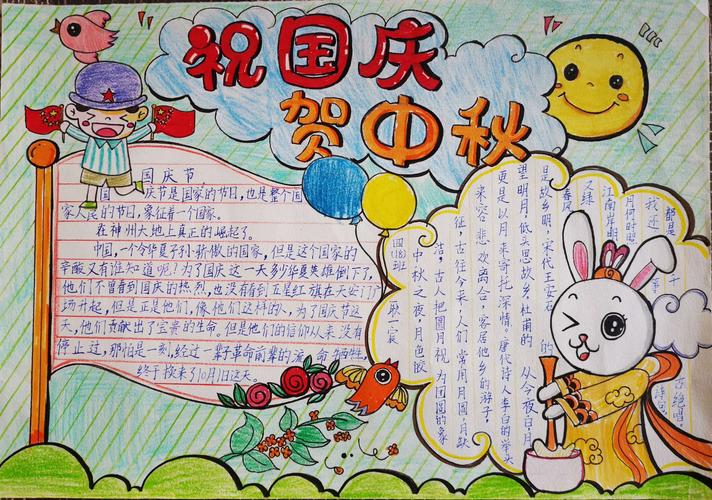 祝国庆
贺中秋
国庆节,
国 庆节是国家的节日,也是整个国
家人民的节日,象征着一个国家。
在神州大地上真正的崛起了。
中国,一个令华夏子孙骄傲的国家,但是这个国家的
辛酸又有谁知道呢?为了国庆这一天多少华夏英雄倒下了,
他们不曾看到国庆的热烈,也没有看到五星红旗在天安门广
场升起,但是正是他们,像他们这样的人,为了国庆节这
天,他们贡献出了宝贵的生命,但是他们的信仰从来没有
停止过,那怕是一刻,经过一辈子革命前辈的流 牺牲,
终于换来了10月1日这天。
四(18)班
耿一宸
中秋之夜,月色皎
洁,古人把圆月视为团圆的象
征,古往今来,人们常用月圆、月缺
来容悲欢离合,客居他乡的游子,
更是以月来寄托深情。唐代诗人李白的举头
望明月,低头思故乡,杜甫的 从今夜白,月
是故乡明,宋代王安石的
春风
又绿
江南岸,明
月何时照
我还
都是千
绝唱
诗句。